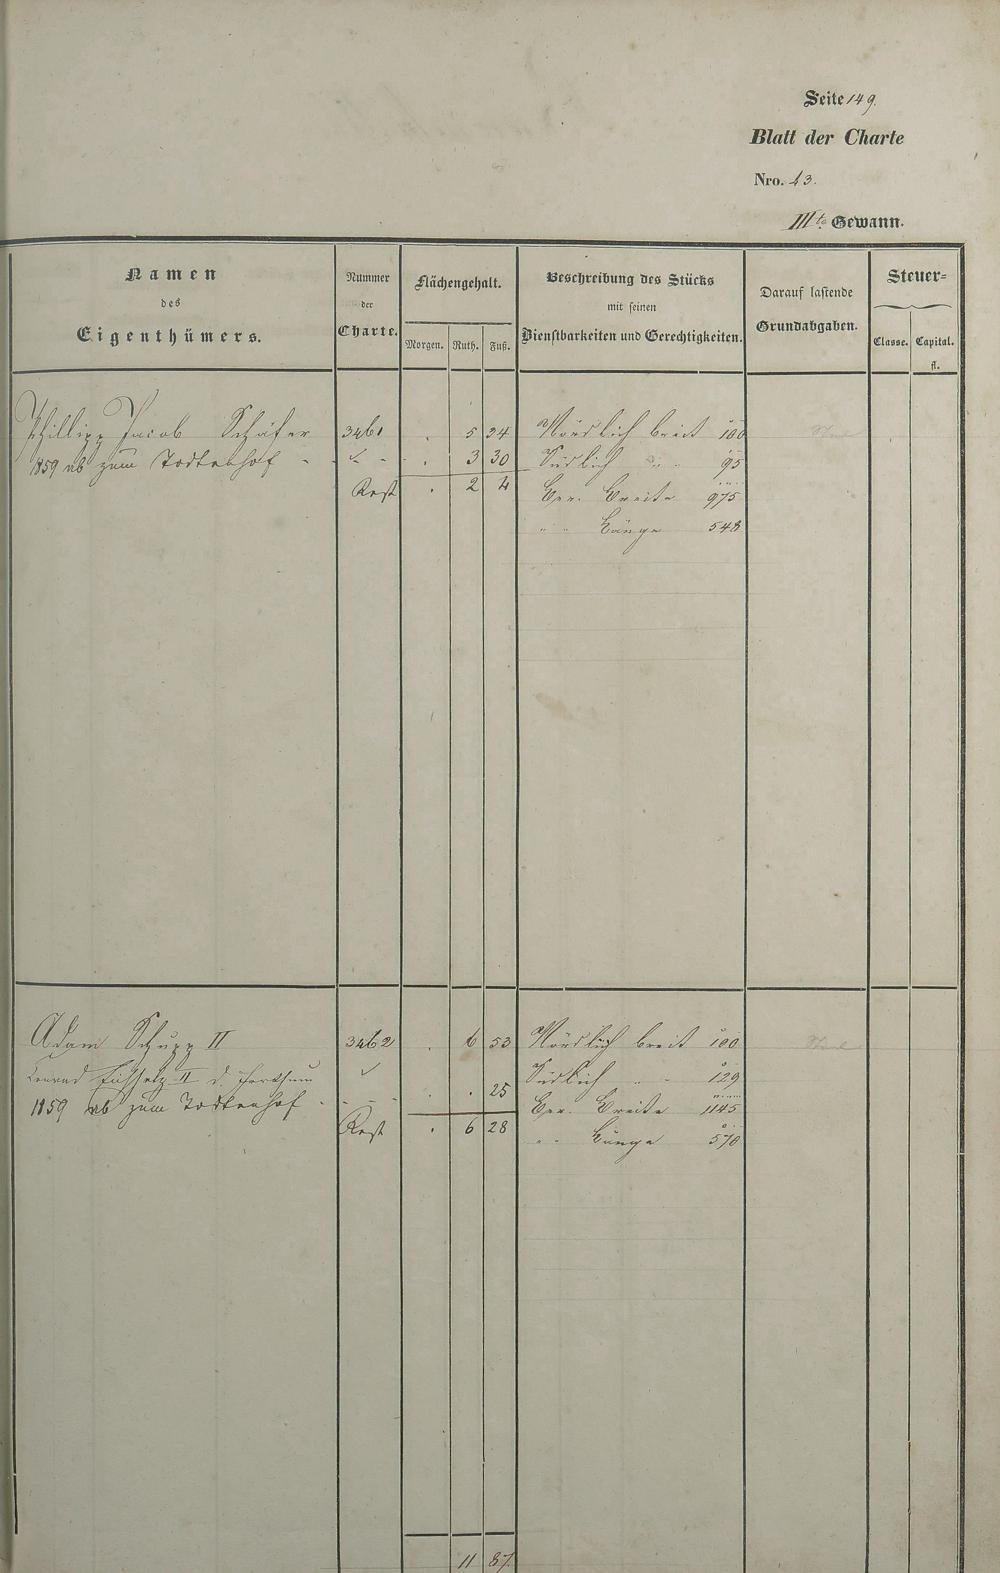 Seite 149.
Blatt der Charte
Nro. 43.
IIIte Gewann.
Namen
des
Eigenthümers.
Nummer
der
Charte.
Flächengehalt.
Morgen. Ruth. Fuß.
Beschreibung des Stücks
mit seinen
Dienstbarkeiten und Gerechtigkeiten.
Darauf lastende
Grundabgaben.
Steuer-
Classe. Capital.
fl.
Phillipp Jacob Schäfer 3461 . 5 34 Nördlich breit 100
1859 ab zum Todtenhof - - - . 3 30 Südlich " " 95
Rest . 2 4 Ber. Breite 975
" " Länge 548
Adam Schupp II 3462 . 6 53 Nördlich breit 100
Conrad II d. Südlich " " 129
1859 ab zum Todtenhof - - - . . 25 Ber. Breite 1145
Rest . 6 28 " " Länge 570
11 87